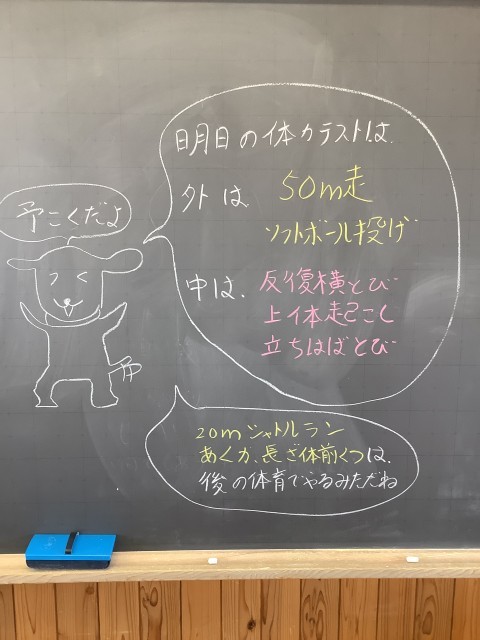 予こくだよ
明日の体力テストは、
外は 50m走
ソフトボール投げ
中は、反復横とび
上体起こし
立ちはばとび
20mシャトルラン
あく力、長ざ体前くつは、
後の体育でやるみただね